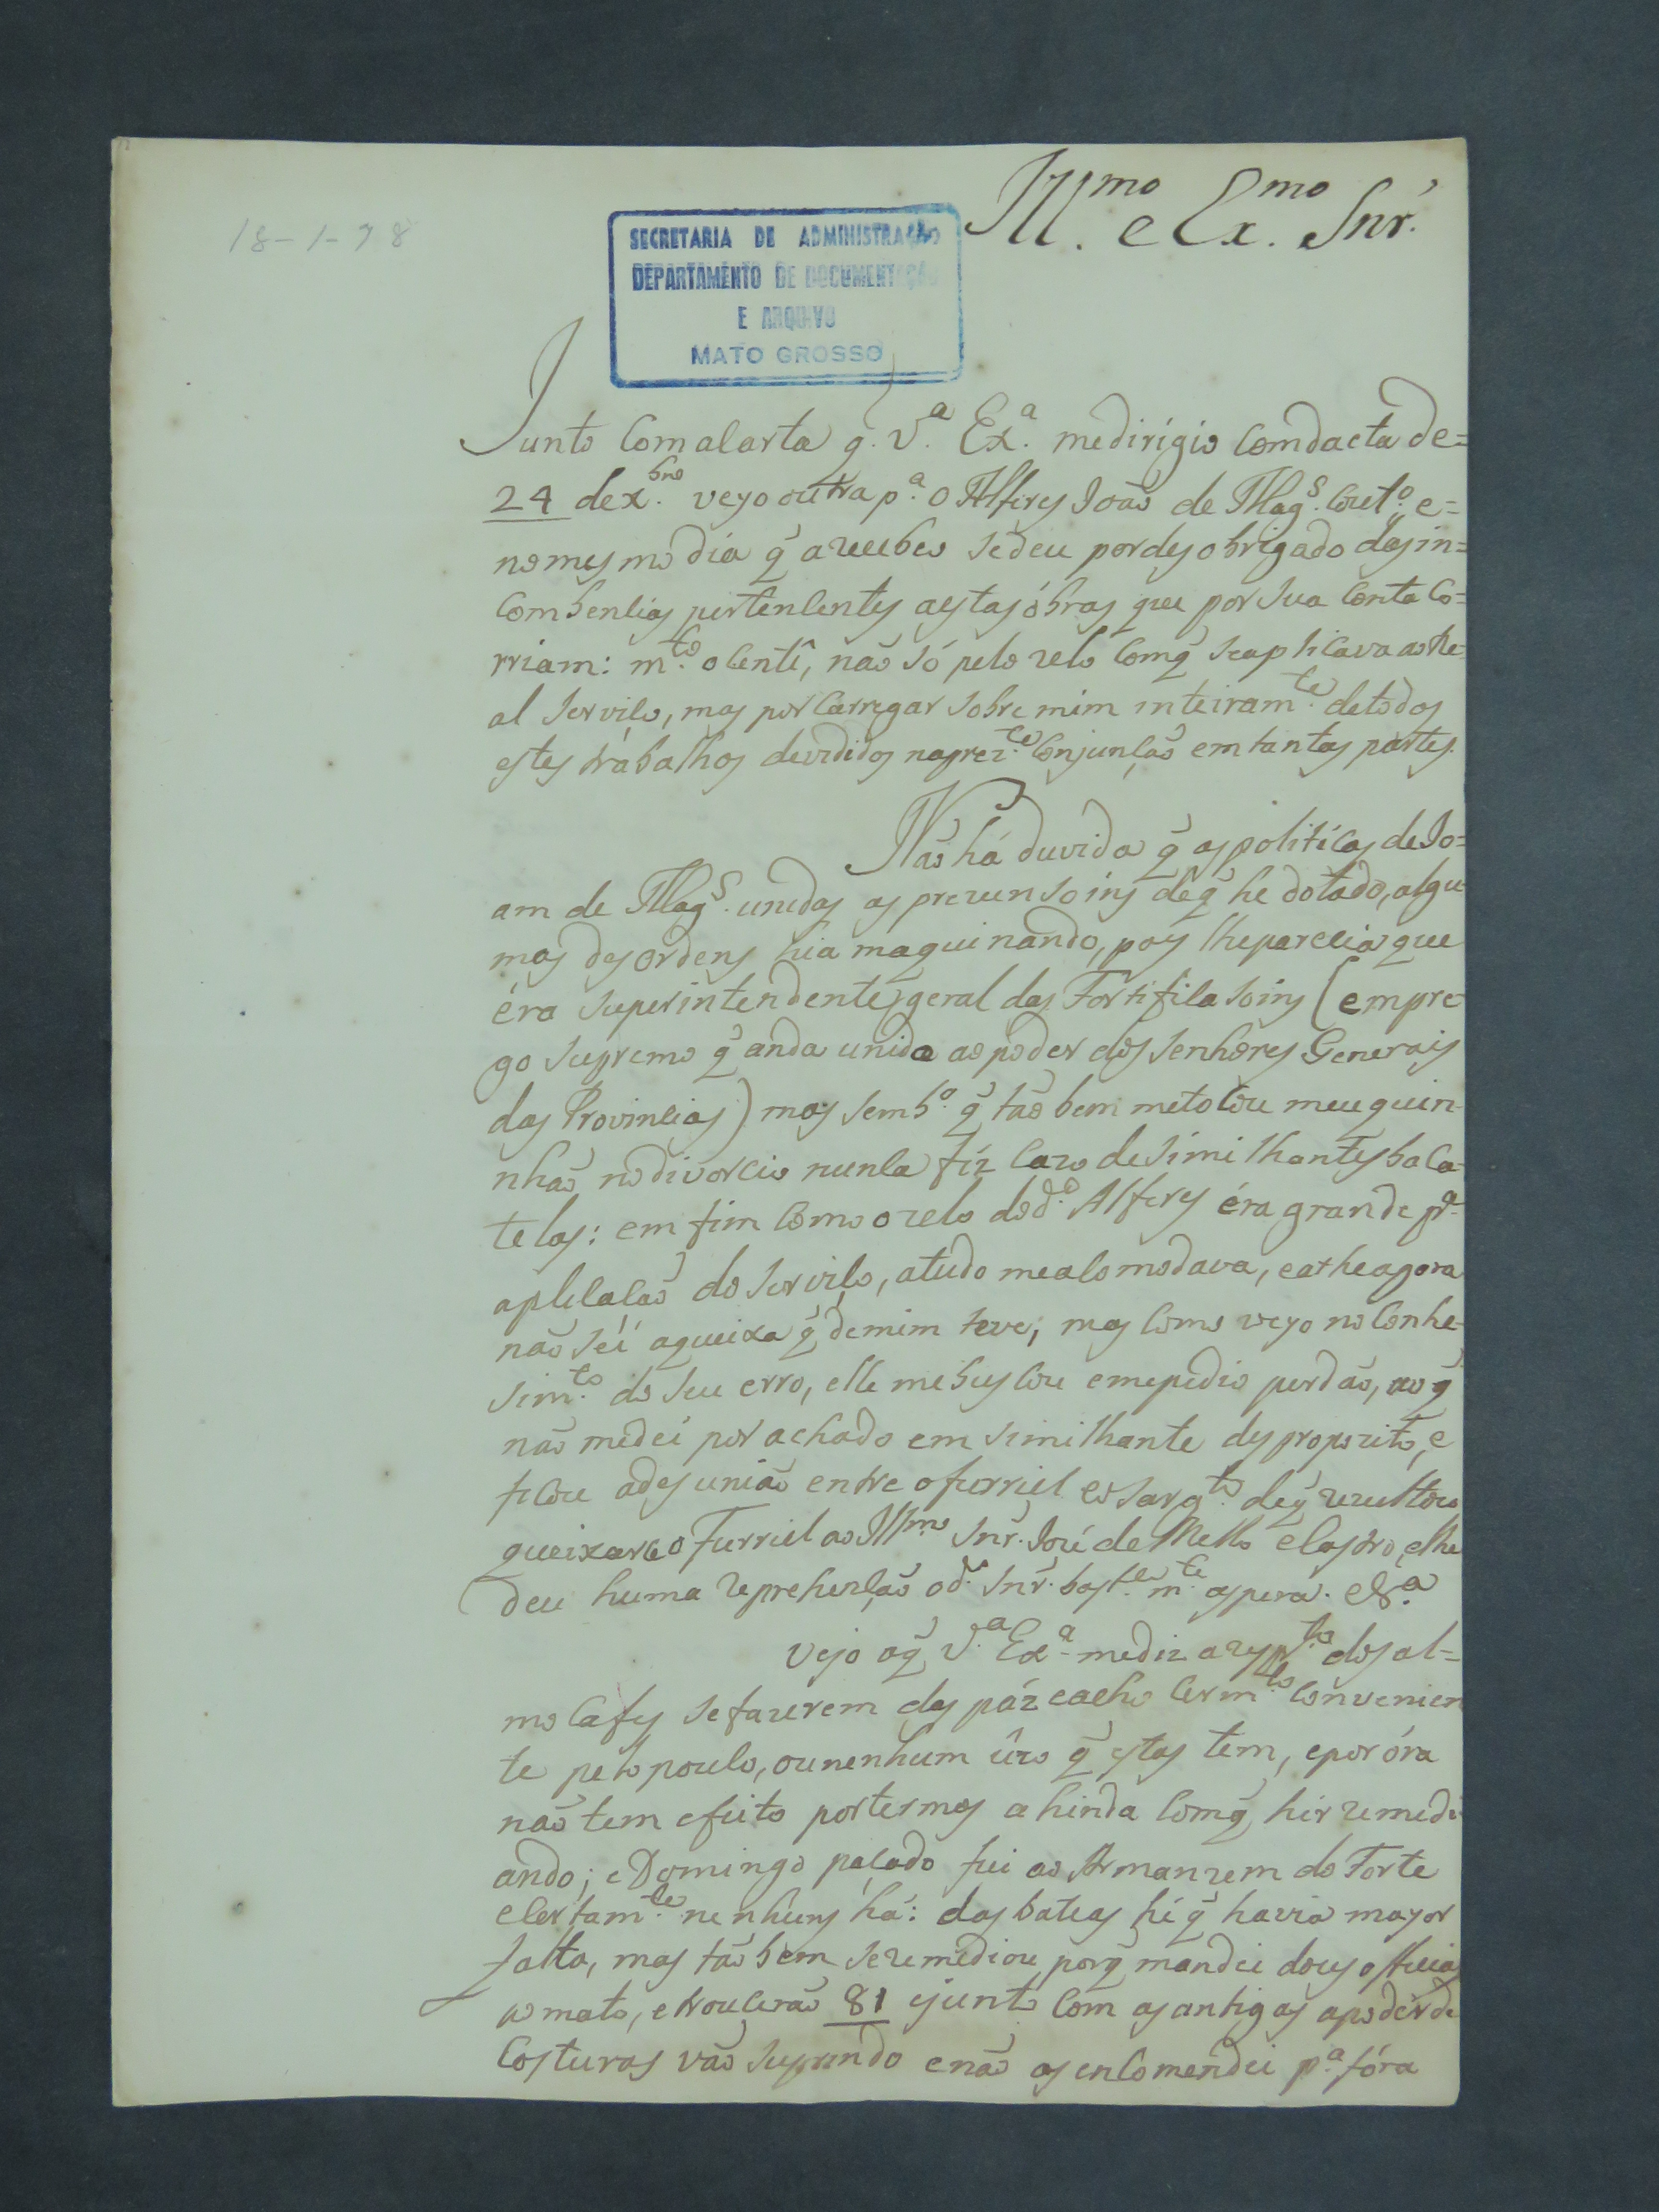 Ill.mo e Ex.mo Snr.
18-1-98
SECRETARIA DE ADMINISTRAÇÃO
DEPARTAMENTO DE DOCUMENTAÇÃO
E ARQUIVO
MATO GROSSO
Junto Com a Carta q. V.a Ex.a me dirígio Com dacta de=
24 de x.bro veyo outra p.a o Alferes João de Mag.s Cout.o, e=
no mesmo día q̃ a recebeo se deu por desobrigado das in=
Combencias pertencentes a estas óbras que por sua Conta Co=
rriam: m.to o Centî, não só pelo zelo Com q̃ se aplicava ao Re-
al Serviço, mas por Carregar Sobre mim inteiram.te de todos
estes trabalhos devididos na prez.te Conjunção em tantas partes.
Não há duvida q̃ as politícas de Jo=
am de Mag.s unidas as prezunsoins de q̃ he dotado, algu-
mas desordens hia maquinando, pois lhe parecia que
éra Superintendente geral das Fortificasoins (empre-
go Supremo q̃ anda unido ao poder dos Senhores Generais
das Provincias) mas sem b.o q̃ tão bem me tocou meu quin-
nhão no divorcio nunca fiz Cazo de Similhantes baca-
telas: em fim Como o zelo do d.o Alferes éra grande p.a
aplicação do Serviço, a tudo me acomodava, e athe agora
não séi a queixa q̃ de mim teve; mas Como veyo no Conhe-
sim.to do Seu erro, elle me buscou e me pedio perdão, ao q̃
não me deí por achado em Similhante despropozito, e
ficou a desunião entre o furriel e o Sarg.to de q̃ rezultou
queixarce o Furriel ao Ill.mo Snr. Jozé de Mello e Castro, e lhe
deu huma reprehenção o d.o Snr. bast.e m.te aspera. &.a
Vejo o q̃ V.a Ex.a me diz a resp.to dos al=
mocafes se fazerem das páz e acho Cer m.to Convenien
te pelo pouco, ou nenhum ûzo q̃ estas tem, e por óra
não tem efeito por termos ahinda Com q̃ hir remedi
ando; e Domingo paçado fui ao Armanzem do Forte
e Certam.te nenhuns há: das bateas hé q̃ havia mayor
falta, mas tão bem se remediou porq̃ mandei dous officiais
ao mato, e troucerão 81 e junto Com as antigas a poder de
Costuras vão Suprindo e não as encomendei p.a fóra